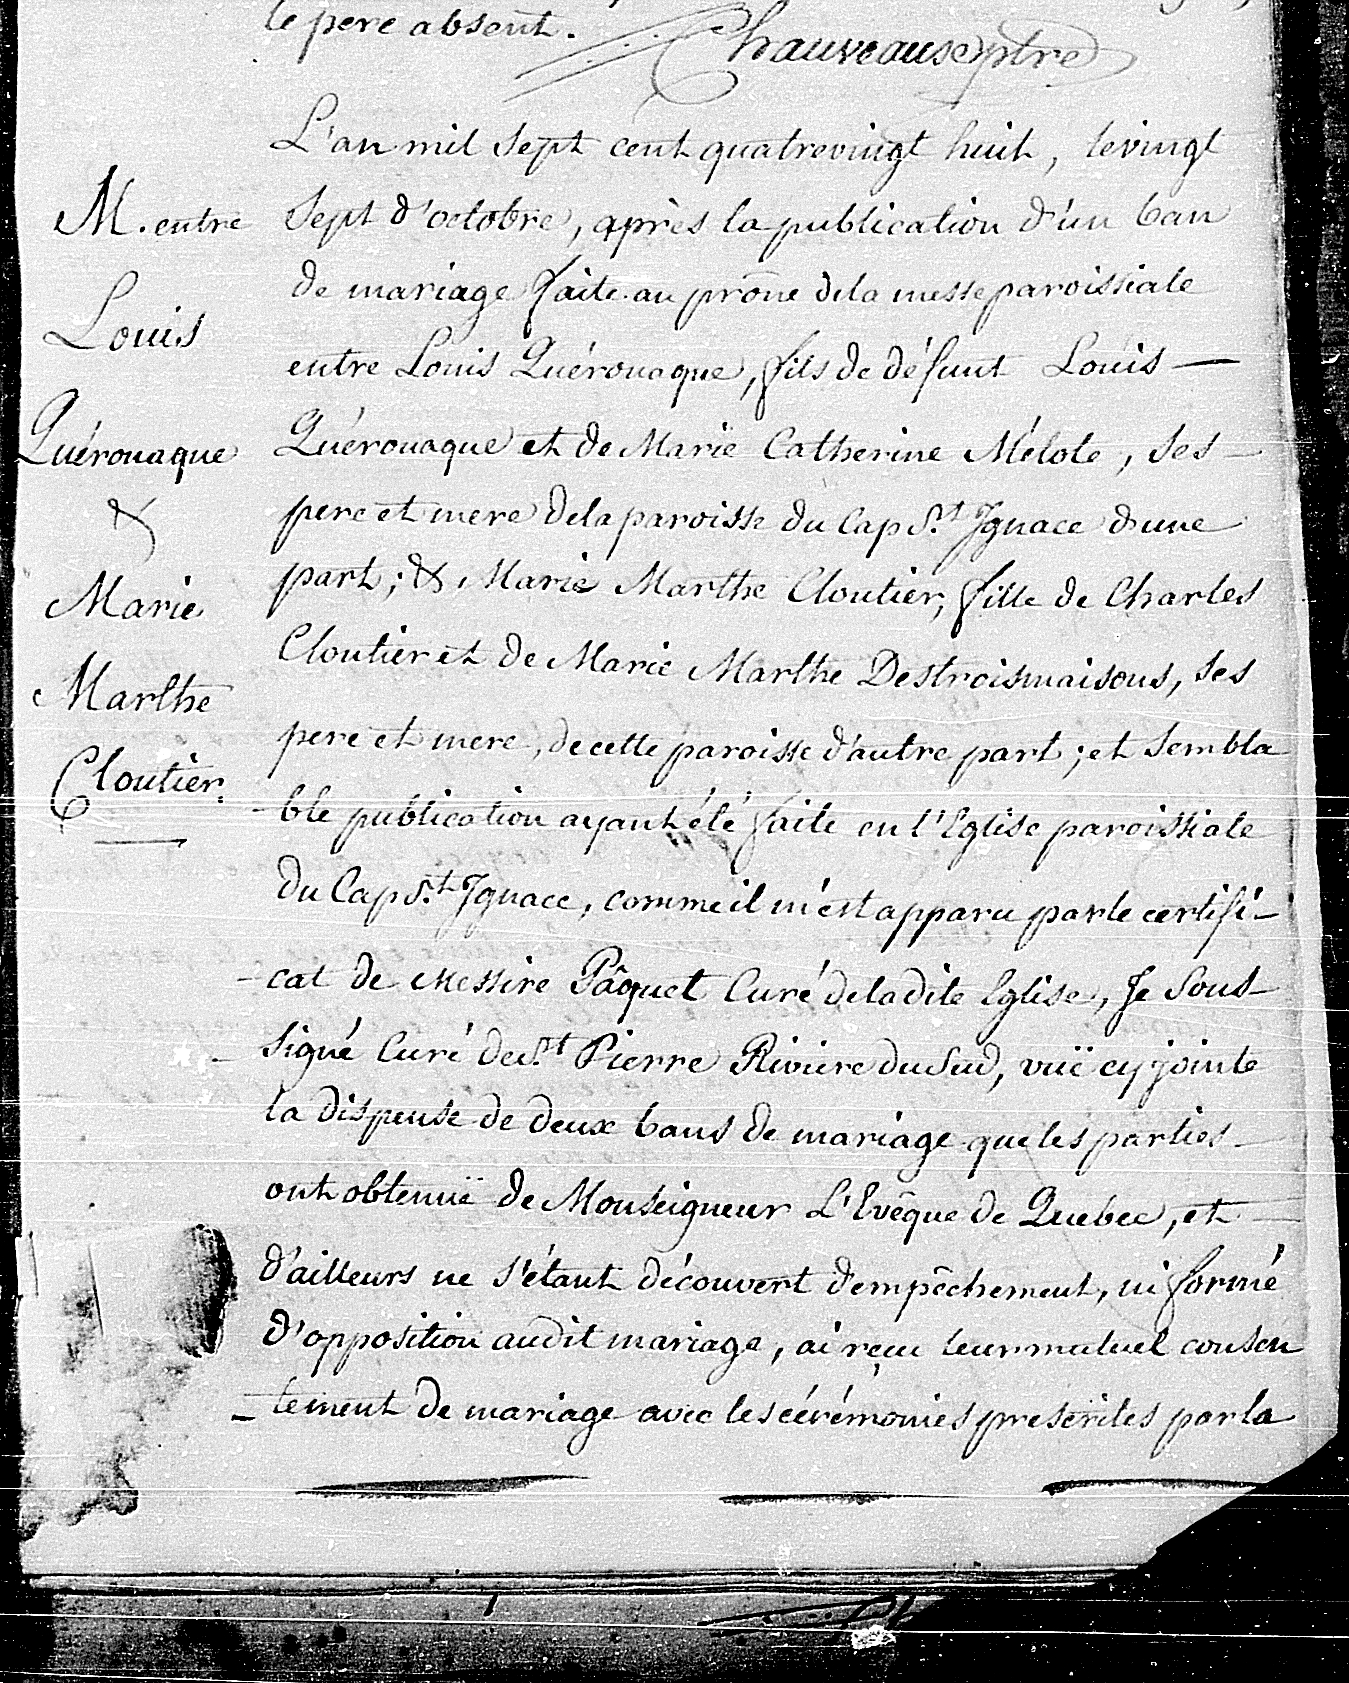 le pere absent.
Chauveaux ptre
L'an mil sept cent quatrevingt huit, le vingt
M. entre
sept d'octobre, après la publication d'un ban
de mariage faite au prône de la messe paroissiale
Louis
entre Louis Quérouaque, fils de défunt Louis —
Quérouaque
Quérouaque et de Marie Catherine Mélote, ses —
&
pere et mere de la paroisse du Cap St. Ignace d'une
part; & Marie Marthe Cloutier, fille de Charles
Marie
Cloutier et de Marie Marthe Destroismaisons, ses
Marthe
pere et mere, de cette paroisse d'autre part; et sembla
Cloutier.
- ble publication ayant été faite en l'Eglise paroissiale
du Cap St. Ignace, comme il m'est apparu par le certifi-
- cat de Messire Pâquet Curé de la dite Eglise, Je sous-
- signé Curé de St. Pierre Riviere du Sud, vuë cy jointe
la dispense de deux bans de mariage que les parties —
ont obtenuë de Monseigneur L'Evêque de Quebec, et —
d'ailleurs ne s'étant découvert d'empêchement, ni formé
d'opposition audit mariage, ai reçu leur mutuel consen
- tement de mariage avec les cérémonies prescrites par la